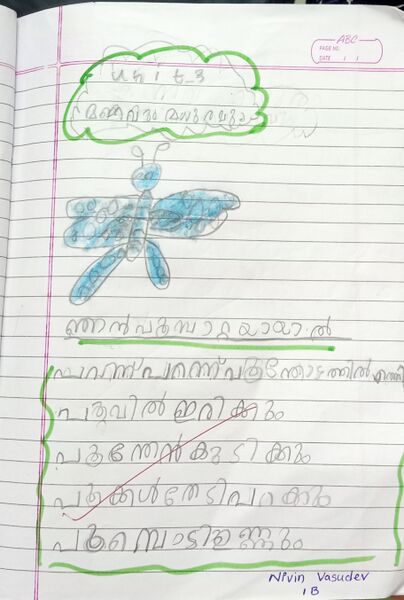 ABC
PAGE NO.
DATE / /
Unit_3
ഞാൻ പൂമ്പാറ്റയായാൽ
പറന്ന് പറന്ന് പൂന്തോട്ടത്തിൽ എത്തി
പൂവിൽ ഇരിക്കും
പൂന്തേൻ കുടിക്കും
പൂക്കൾ തേടി പറക്കും
പൂമ്പൊടി ഉണ്ണും
Nivin Vasudev
1B